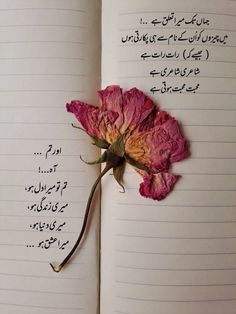 جہاں تک میرا تعلق ہے ..!
میں چیزوں کو اُن کے نام سے ہی پکارتی ہوں
( جیسے کہ ) رات رات ہے
شاعری شاعری ہے
محبت محبت ہوتی ہے
اور تم ...
آہ...!
تم تو میرا دل ہو،
میری زندگی ہو،
میری دنیا ہو،
میرا عشق ہو ...